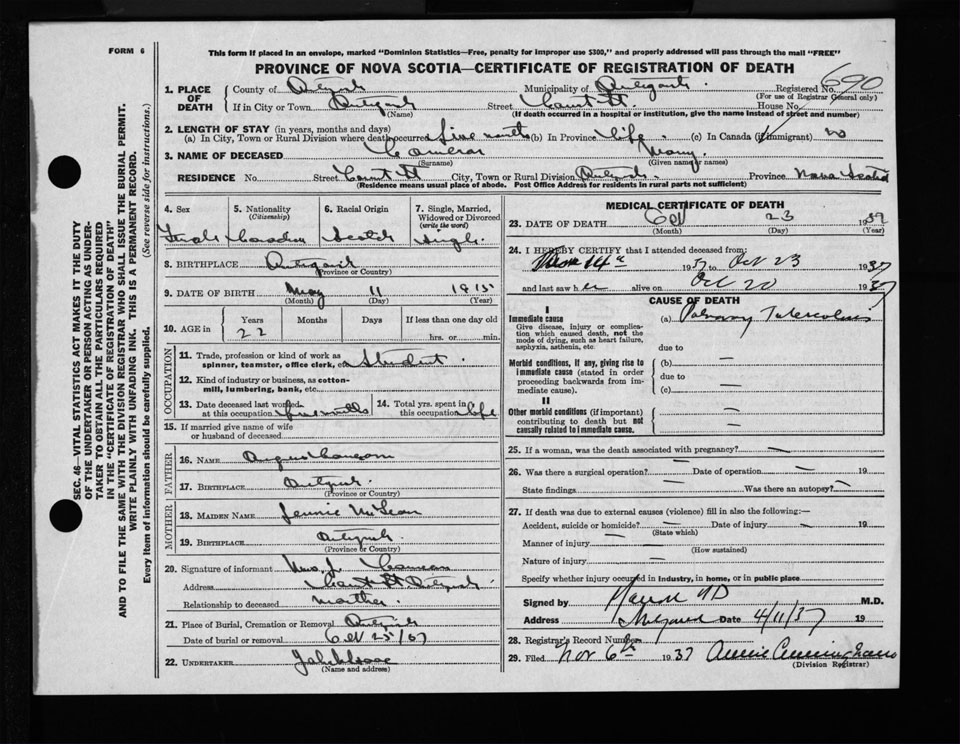 FORM 6
This form if placed in an envelope, marked "Dominion Statistics—Free, penalty for improper use $300," and properly addressed will pass through the mail "FREE"
PROVINCE OF NOVA SCOTIA—CERTIFICATE OF REGISTRATION OF DEATH
690
1. PLACE OF DEATH
County of Antigonish Municipality of Antigonish Registered No.
(For use of Registrar General only)
If in City or Town Antigonish Street Court St House No.
(Name) (If death occurred in a hospital or institution, give the name instead of street and number)
2. LENGTH OF STAY (in years, months and days)
(a) In City, Town or Rural Division where death occurred five months (b) In Province life (c) In Canada (if immigrant) no
3. NAME OF DECEASED Cameron Mary
(Surname) (Given name or names)
RESIDENCE No. Street Court St City, Town or Rural Division Antigonish Province Nova Scotia
(Residence means usual place of abode. Post Office Address for residents in rural parts not sufficient)
SEC. 46—VITAL STATISTICS ACT MAKES IT THE DUTY
OF THE UNDERTAKER OR PERSON ACTING AS UNDER-
TAKER TO OBTAIN ALL THE PARTICULARS REQUIRED
IN THE "CERTIFICATE OF REGISTRATION OF DEATH"
AND TO FILE THE SAME WITH THE DIVISION REGISTRAR WHO SHALL ISSUE THE BURIAL PERMIT.
WRITE PLAINLY WITH UNFADING INK. THIS IS A PERMANENT RECORD.
Every item of information should be carefully supplied. (See reverse side for instructions.)
4. Sex
Female
5. Nationality
(Citizenship)
Canadian
6. Racial Origin
Scotch
7. Single, Married, Widowed or Divorced
(write the word)
Single
8. BIRTHPLACE Antigonish
(Province or Country)
9. DATE OF BIRTH May 11 1915
(Month) (Day) (Year)
10. AGE in Years Months Days If less than one day old
22 hrs. or min.
OCCUPATION
11. Trade, profession or kind of work as
spinner, teamster, office clerk, etc. Student
12. Kind of industry or business, as cotton-
mill, lumbering, bank, etc.
13. Date deceased last worked
at this occupation five months
14. Total yrs. spent in
this occupation life
15. If married give name of wife
or husband of deceased
FATHER
16. NAME Angus Cameron
17. BIRTHPLACE Antigonish
(Province or Country)
MOTHER
18. MAIDEN NAME Jennie McLean
19. BIRTHPLACE Antigonish
(Province or Country)
20. Signature of informant Mrs. J. Cameron
Address Court St Antigonish
Relationship to deceased mother
21. Place of Burial, Cremation or Removal Antigonish
Date of burial or removal Oct 25/37
22. UNDERTAKER
(Name and address)
MEDICAL CERTIFICATE OF DEATH
23. DATE OF DEATH Oct 23 1937
(Month) (Day) (Year)
24. I HEREBY CERTIFY that I attended deceased from:
14th 1937 to Oct 23 1937
and last saw her alive on Oct 20 1937
CAUSE OF DEATH
I
Immediate cause (a) Pulmonary Tuberculosis
Give disease, injury or complica-
tion which caused death, not the
mode of dying, such as heart failure,
asphyxia, asthenia, etc.
due to
Morbid conditions, if any, giving rise to
immediate cause (stated in order
proceeding backwards from im-
mediate cause).
(b) —
due to —
(c) —
II
Other morbid conditions (if important)
contributing to death but not
causally related to immediate cause.
—
25. If a woman, was the death associated with pregnancy? —
26. Was there a surgical operation? — Date of operation — 19
State findings — Was there an autopsy? —
27. If death was due to external causes (violence) fill in also the following:—
Accident, suicide or homicide? — Date of injury — 19
(State which)
Manner of injury —
(How sustained)
Nature of injury —
Specify whether injury occurred in industry, in home, or in public place
Signed by MD M.D.
Address Antigonish Date 4/11/37 19
28. Registrar's Record Number
29. Filed Nov 6th 1937 Annie Cunningham
(Division Registrar)